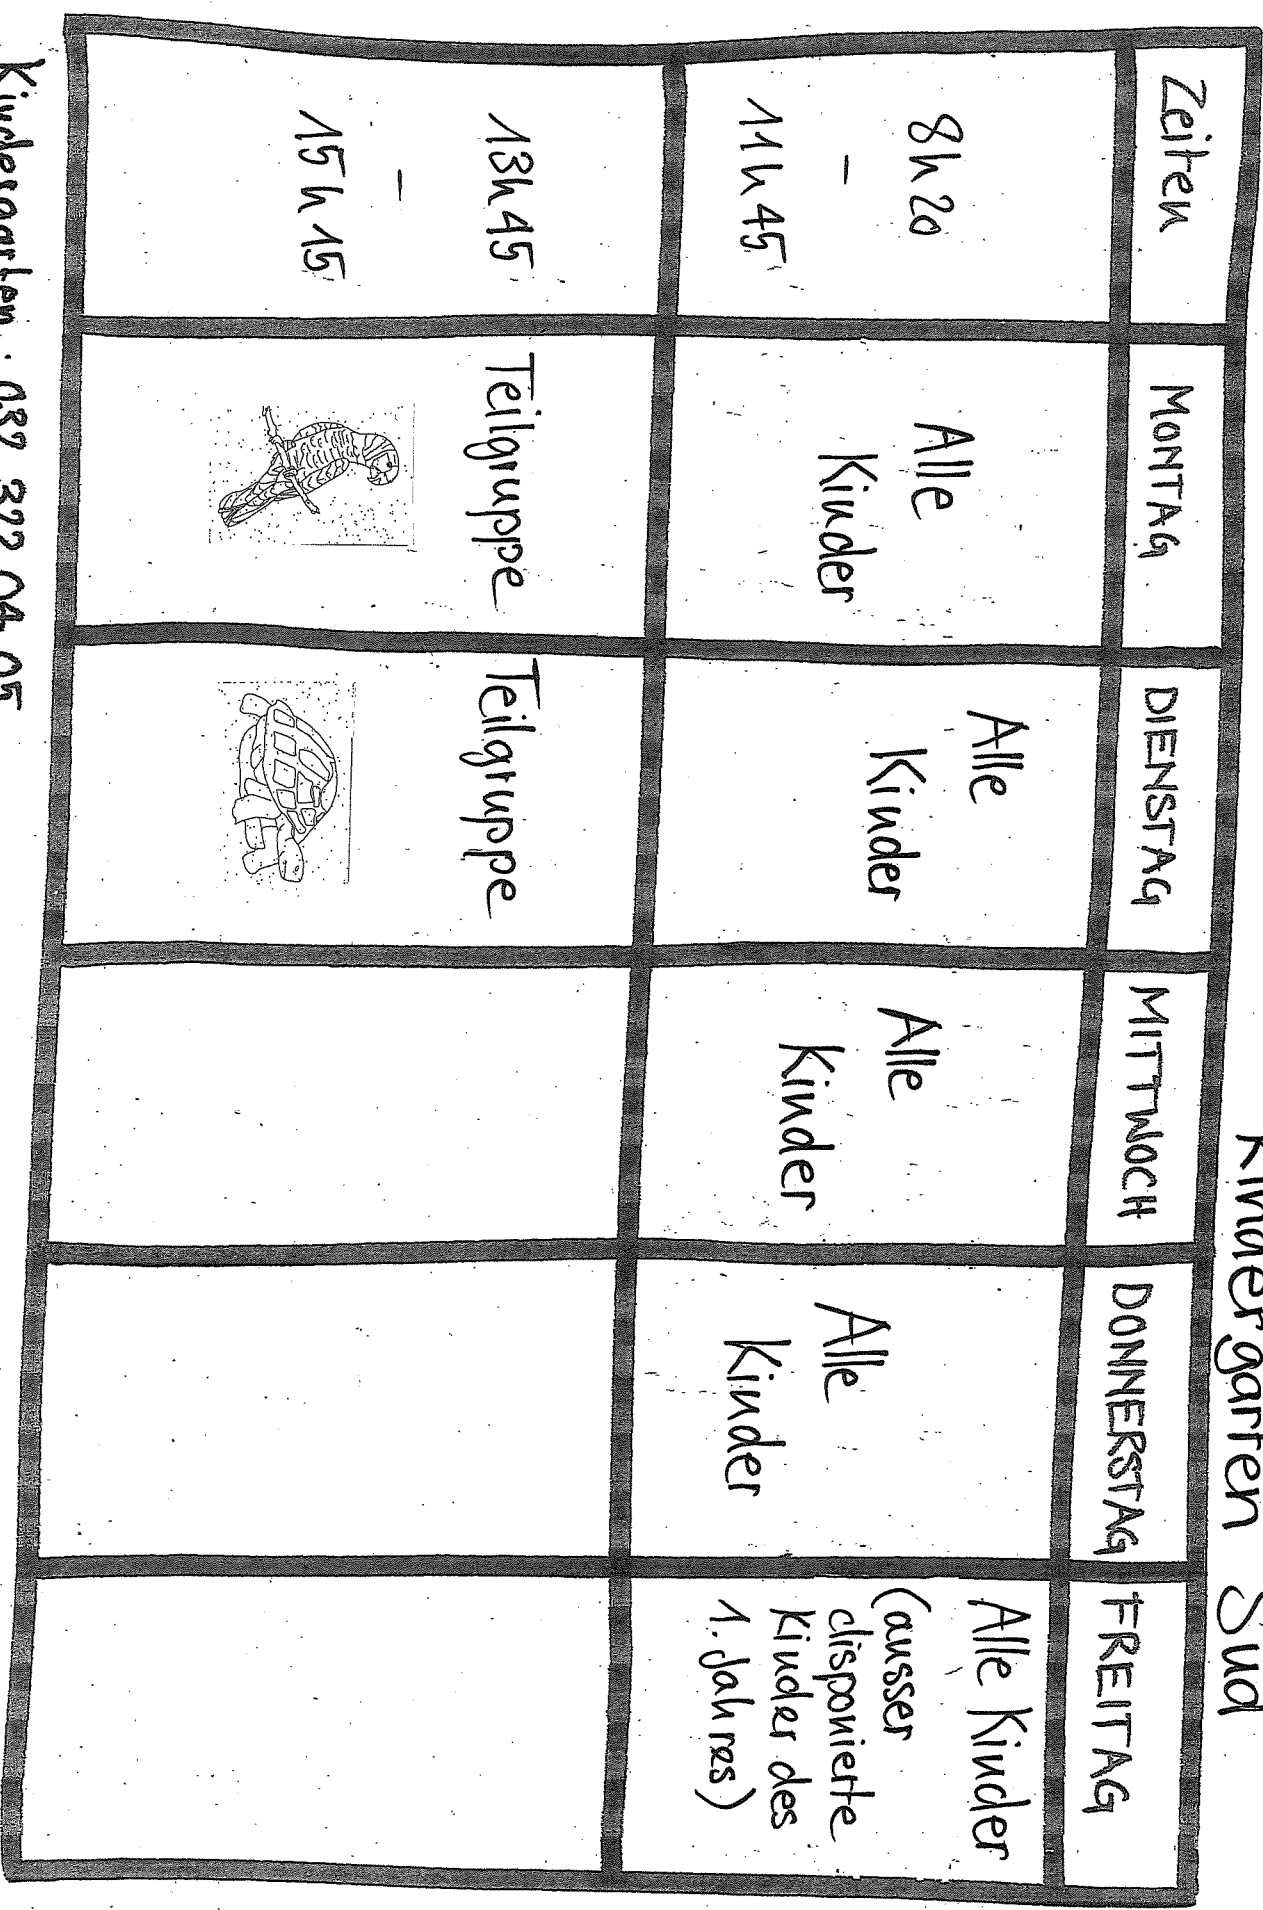 Kindergarten Süd
Zeiten MONTAG DIENSTAG MITTWOCH DONNERSTAG FREITAG
8h20
–
11h45
Alle
Kinder
Alle
Kinder
Alle
Kinder
Alle
Kinder
Alle Kinder
(ausser
disponierte
Kinder des
1. Jahres)
13h45
–
15h15
Teilgruppe
Teilgruppe
Kindergarten: 032 322 04 05